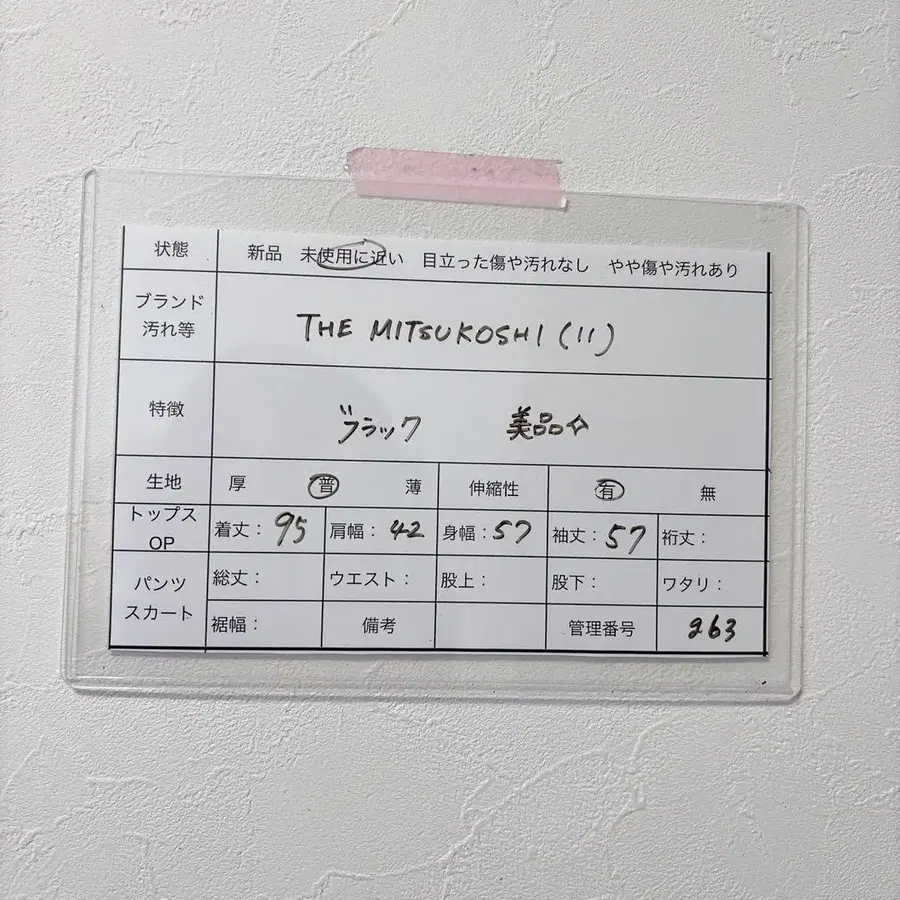 状態 新品 未使用に近い 目立った傷や汚れなし やや傷や汚れあり
ブランド
汚れ等
THE MITSUKOSHI (11)
特徴 ブラック 美品
生地 厚 普 薄 伸縮性 有 無
トップス
OP
着丈: 95 肩幅: 42 身幅: 57 袖丈: 57 裄丈:
パンツ
スカート
総丈: ウエスト: 股上: 股下: ワタリ:
裾幅: 備考 管理番号 263